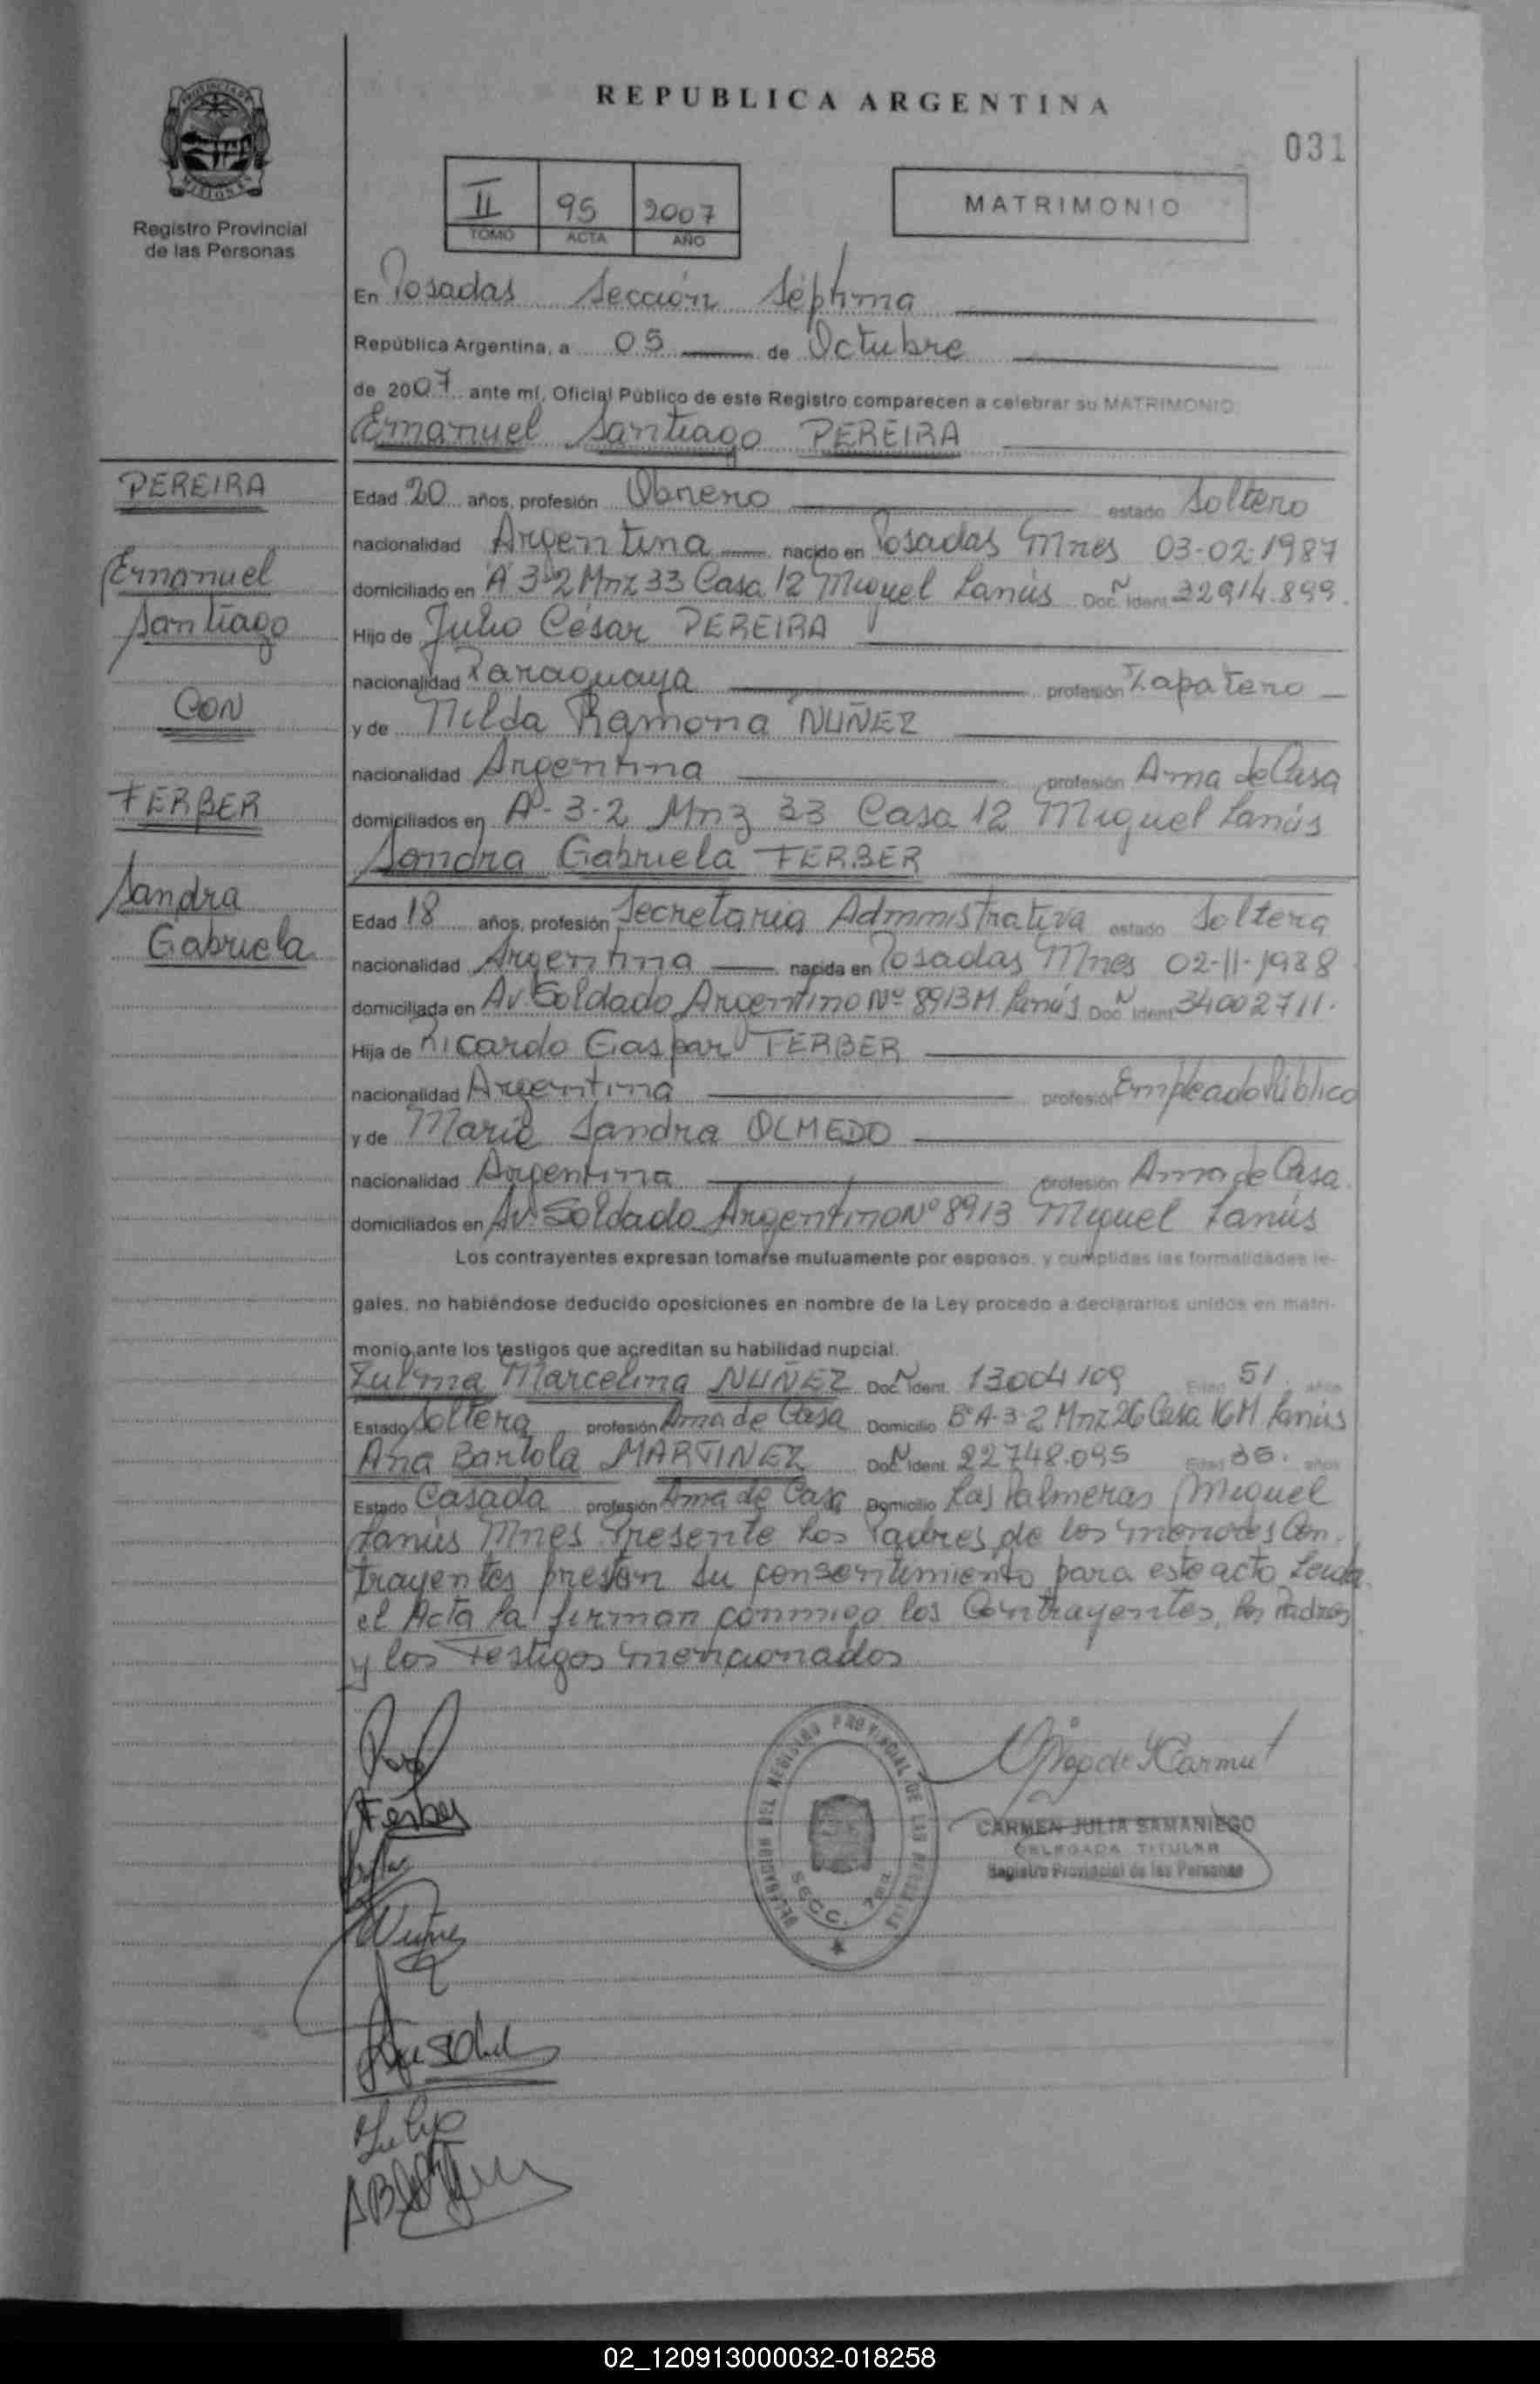 REPUBLICA ARGENTINA
031
PROVINCIA DE
MISIONES
Registro Provincial
de las Personas
II 95 2007
TOMO ACTA AÑO
MATRIMONIO
En Posadas Sección Séptima
República Argentina, a 05 de Octubre
de 2007 ante mí, Oficial Público de este Registro comparecen a celebrar su MATRIMONIO
Emanuel Santiago PEREIRA
PEREIRA
Emanuel
Santiago
CON
FERBER
Sandra
Gabriela
Edad 20 años, profesión Obrero estado Soltero
nacionalidad Argentina nacido en Posadas Mnes 03-02-1987
domiciliado en A 3-2 Mnz 33 Casa 12 Miguel Lanús Doc. N Ident 32914.899.
Hijo de Julio César PEREIRA
nacionalidad Paraguaya profesión Zapatero
y de Nilda Ramona NUÑEZ
nacionalidad Argentina profesión Ama de Casa
domiciliados en A-3-2 Mnz 33 Casa 12 Miguel Lanús
Sandra Gabriela FERBER
Edad 18 años, profesión Secretaria Administrativa estado Soltera
nacionalidad Argentina nacida en Posadas Mnes 02-11-1988
domiciliada en Av. Soldado Argentino Nº 8913 M. Lanús Doc. N Ident 34002711.
Hija de Ricardo Gaspar FERBER
nacionalidad Argentina profesión Empleado Público
y de María Sandra OLMEDO
nacionalidad Argentina profesión Ama de Casa
domiciliados en Av. Soldado Argentino Nº 8913 Miguel Lanús
Los contrayentes expresan tomarse mutuamente por esposos, y cumplidas las formalidades le-
gales, no habiéndose deducido oposiciones en nombre de la Ley procedo a declararlos unidos en matri-
monio ante los testigos que acreditan su habilidad nupcial.
Zulma Marcelina NUÑEZ Doc. N Ident. 13004109 Edad 51 años
Estado Soltera profesión Ama de Casa Domicilio Bº A-3-2 Mnz 26 Casa 16 M Lanús
Ana Bartola MARTINEZ Doc. N Ident. 22748.095 Edad 35. años
Estado Casada profesión Ama de Casa Domicilio Las Palmeras Miguel
Lanús Mnes Presente los Padres de los menores Con
trayentes prestan su consentimiento para este acto Leida
el Acta la firman conmigo los Contrayentes, los Padres
y los Testigos mencionados
Ferber
Nuñez
DELEGACION DEL REGISTRO PROVINCIAL DE LAS PERSONAS
SECC. 7ma
CARMEN JULIA SAMANIEGO
DELEGADA TITULAR
Registro Provincial de las Personas
02_120913000032-018258